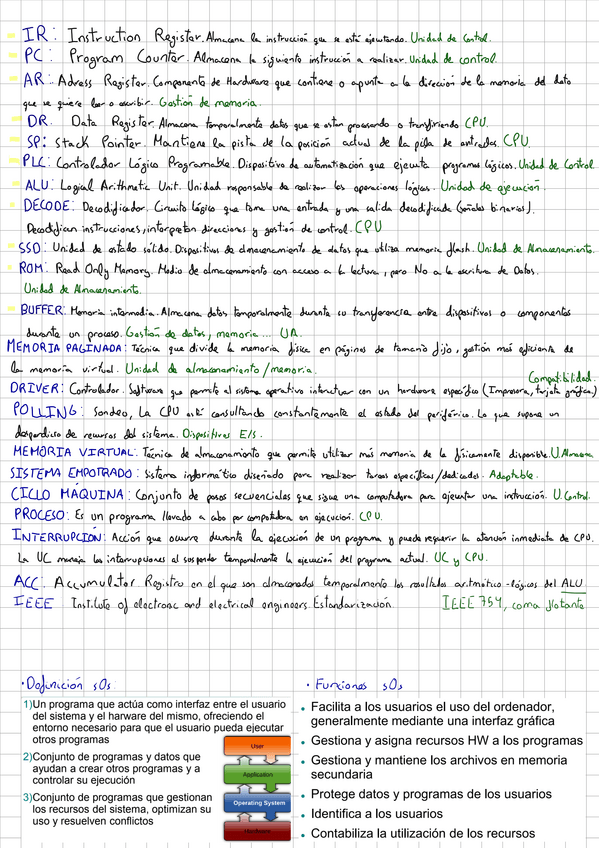 IR: Instruction Register. Almacena la instrucción que se está ejecutando. Unidad de Control.
PC: Program Counter. Almacena la siguiente instrucción a realizar. Unidad de control.
AR: Adress Register. Componente de Hardware que contiene o apunta a la dirección de la memoria del dato
que se quiere leer o escribir. Gestión de memoria.
DR. Data Register. Almacena temporalmente datos que se estan procesando o transfiriendo CPU.
SP: Stack Pointer. Mantiene la pista de la posición actual de la pila de entradas. CPU.
PLC: Controlador Lógico Programable. Dispositivo de automatización que ejecuta programas lógicos. Unidad de Control
ALU: Logial Arithmetic Unit. Unidad responsable de realizar las operaciones lógicas. Unidad de ejecución.
DECODE: Decodificador. Circuito lógico que toma una entrada y una salida decodificada (señales binarias).
Decodifican instrucciones, interpretan direcciones y gestión de control. CPU
SSD: Unidad de estado sólido. Dispositivos de almacenamiento de datos que utiliza memoria flash. Unidad de Almacenamiento.
ROM: Read Only Memory. Medio de almacenamiento con acceso a la lectura, pero No a la escritura de Datos.
Unidad de Almacenamiento.
BUFFER: Memoria intermedia. Almacena datos temporalmente durante su transferencia entre dispositivos o componentes
durante un proceso. Gestión de datos, memoria... UA.
MEMORIA PAGINADA: Técnica que divide la memoria física en páginas de tamaño fijo, gestión más eficiente de
la memoria virtual. Unidad de almacenamiento/memoria.
Compatibilidad.
DRIVER: Controlador. Software que permite al sistema operativo interactuar con un hardware específico (Impresora, tarjeta gráfica)
POLLING: Sondeo, La CPU está consultando constantemente el estado del periférico. Lo que supone un
desperdicio de recursos del sistema. Dispositivos E/S.
MEMORIA VIRTUAL: Técnica de almacenamiento que permite utilizar más memoria de la físicamente disponible. U.Almacena
SISTEMA EMPOTRADO: Sistema informático diseñado para realizar tareas específicas/dedicadas. Adaptable.
CICLO MÁQUINA: Conjunto de pasos secuenciales que sigue una computadora para ejecutar una intrucción. U.Control.
PROCESO: Es un programa llevado a cabo por computadora en ejecución. CPU.
INTERRUPCIÓN: Acción que ocurre durante la ejecución de un programa y puede requerir la atención inmediata de CPU.
La UC maneja las interrupciones al suspender temporalmente la ejecución del programa actual. UC y CPU.
ACC: Accumulator Registro en el que son almacenados temporalmente los resultados aritmético-lógicos del ALU
IEEE Institute of electronic and electrical engineers. Estandarización. IEEE 754, coma flotante
· Definición sOs:
1)Un programa que actúa como interfaz entre el usuario
del sistema y el harware del mismo, ofreciendo el
entorno necesario para que el usuario pueda ejecutar
otros programas
2)Conjunto de programas y datos que
ayudan a crear otros programas y a
controlar su ejecución
3)Conjunto de programas que gestionan
los recursos del sistema, optimizan su
uso y resuelven conflictos
User
Application
Operating System
Hardware
· Funciones sOs
• Facilita a los usuarios el uso del ordenador,
generalmente mediante una interfaz gráfica
• Gestiona y asigna recursos HW a los programas
• Gestiona y mantiene los archivos en memoria
secundaria
• Protege datos y programas de los usuarios
• Identifica a los usuarios
• Contabiliza la utilización de los recursos